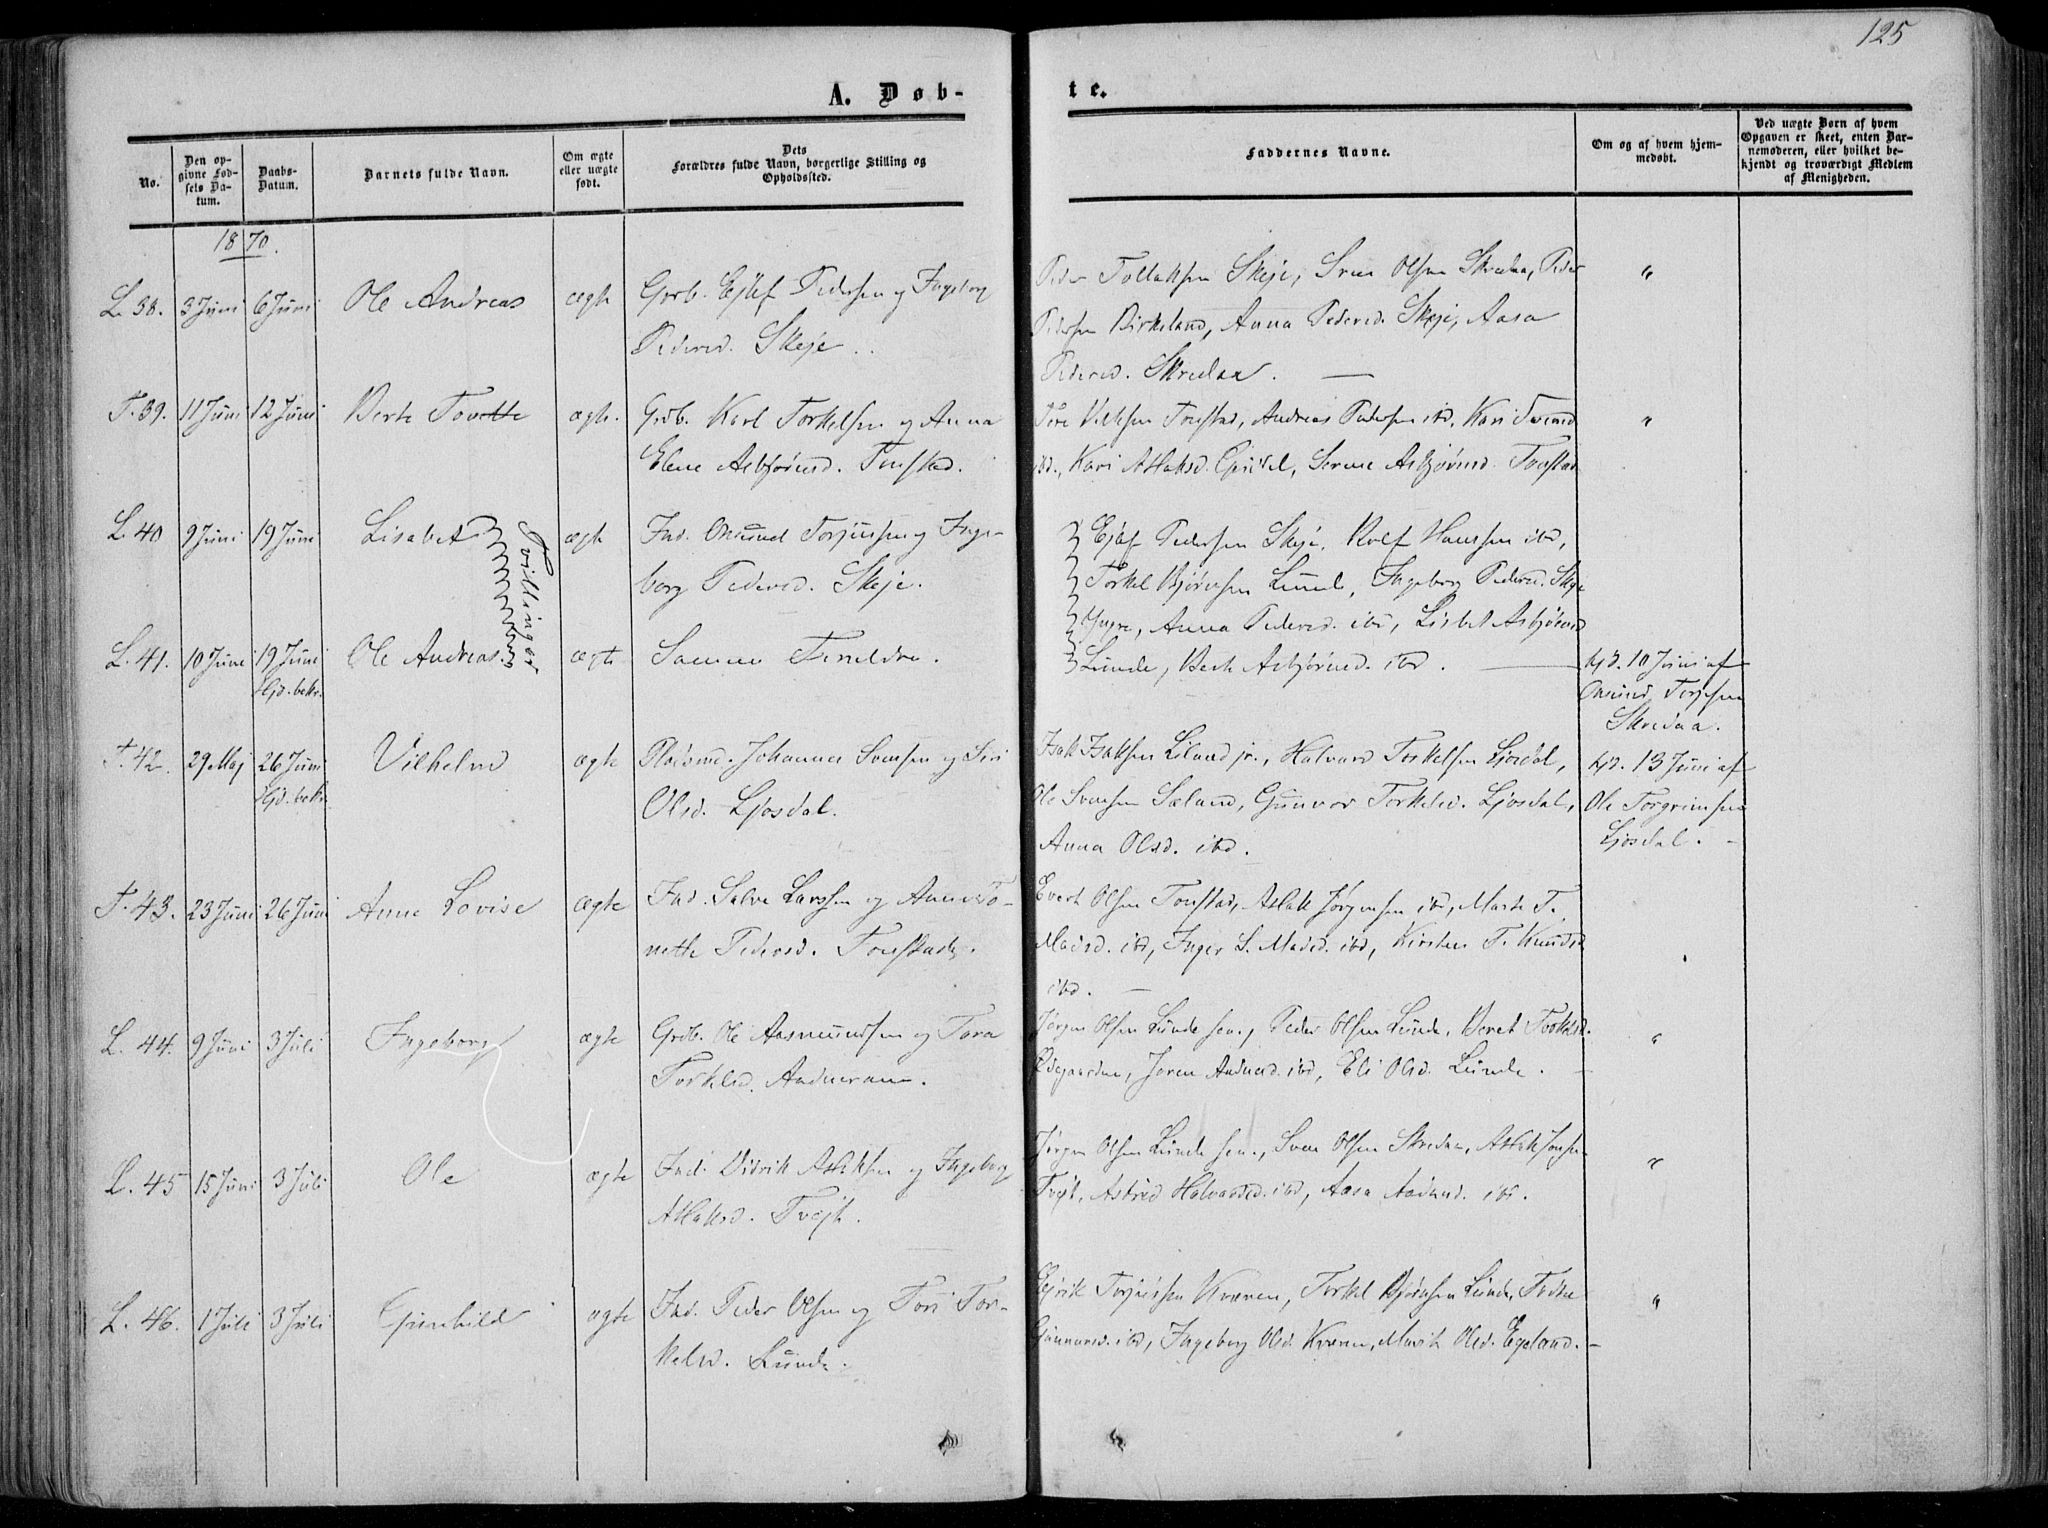 125
A. Døb-
te.
No.
Den op-
givne Fød-
sels Da-
tum.
Daabs-
Datum.
Barnets fulde Navn.
Om ægte
eller uægte
født.
Dets
Forældres fulde Navn, borgerlige Stilling og
Opholdssted.
Faddernes Navne.
Om og af hvem hjem-
medøbt.
Ved uægte Børn af hvem
Opgaven er skeet, enten Bar-
nemoderen, eller hvilket be-
kjendt og troværdigt Medlem
af Menigheden.
1870.
L. 38. 3 Juni 6 Juni Ole Andreas ægte Grdb. Ejlef Pedersen og Ingeborg
Pedersd. Skeje.
Peder Tollaksen Skeje, Sven Olsen Skredaa, Peder
Pedersen Birkeland, Anna Pedersd. Skeje, Aasa
Pedersd. Skredaa. —
"
T. 39. 11 Juni 12 Juni Berte Tonette ægte. Grdb. Karl Torkelsen og Anna
Elene Asbjørnsd. Tonstad.
Tonstad, Andreas Pedersen ibd, Kari
ibd., Kari Atlaksd. Serine Asbjørnsd. Tonstad
"
L. 40 9 Juni 19 Juni Lisabet ægte Ind. Omund Torjussen og Inge-
borg Pedersd. Skeje.
Tvillinger
Ejlef Pedersen Skeje, Rolf Hanssen ibd,
Torkel Bjørnsen Lunde, Ingeborg Pedersd. Skeje
Yngre, Anna Pedersd. ibd, Lisbet Asbjørnsd
L. 41. 10 Juni 19 Juni Ole Andreas. ægte Samme Forældre.
Hjd. bekr.
Lunde, Berte Asbjørnsd. ibd. —
hjd. 10 Juni af
Omund Torjusen
Skredaa.
T. 42. 29 Maj 26 Juni Vilhelm ægte Pladsmd. Johannes Svensen og Siri
Hjd. bekr.
Olsd. Ljosdal.
Isak Isaksen Liland jr., Halvard Torkelsen Ljosdal,
Ole Svensen Sæland, Gunvor Torkelsd. Ljosdal,
Anna Olsd. ibd.
hjd. 13 Juni af
Ole Torgrimsen
Ljosdal. -
T. 43. 23 Juni 26 Juni Anne Lovise ægte Ind. Salve Larssen og Anne To-
nette Pedersd. Tonstad.
Evert Olsen Tonstad, Atlak Jørgensen ibd, Marte T.
Madsd. ibd, Inger S. Madsd. ibd, Kirsten T. Knudsd
ibd. —
L. 44. 9 Juni 3 Juli Ingeborg ægte Grdb. Ole Aasmundsen og Tora
Torkelsd.
Jørgen Olsen Lunde sen., Peder Olsen Lunde, Beret Torkelsd.
Ødegaarden, Joren ibd, Eli Olsd. Lunde. -
"
L. 45 15 Juni 3 Juli Ole ægte Ind. Didrik Atlaksen og Ingeborg
Atlaksd. Tvejt.
Jørgen Olsen Lunde sen., Sven Olsen Skredaa, Atlak
Tvejt, Astrid Halvardsd. ibd, Aasa ibd.
"
L. 46. 1 Juli 3 Juli Gunhild ægte Ind. Peder Olsen og Tori Tor-
kelsd. Lunde.
Ejvik Torjussen Kvæven, Torkel Bjørnsen Lunde,
Gunnarsd. ibd, Ingeborg Olsd. Kvæven, Marit Olsd. Egeland. -
"